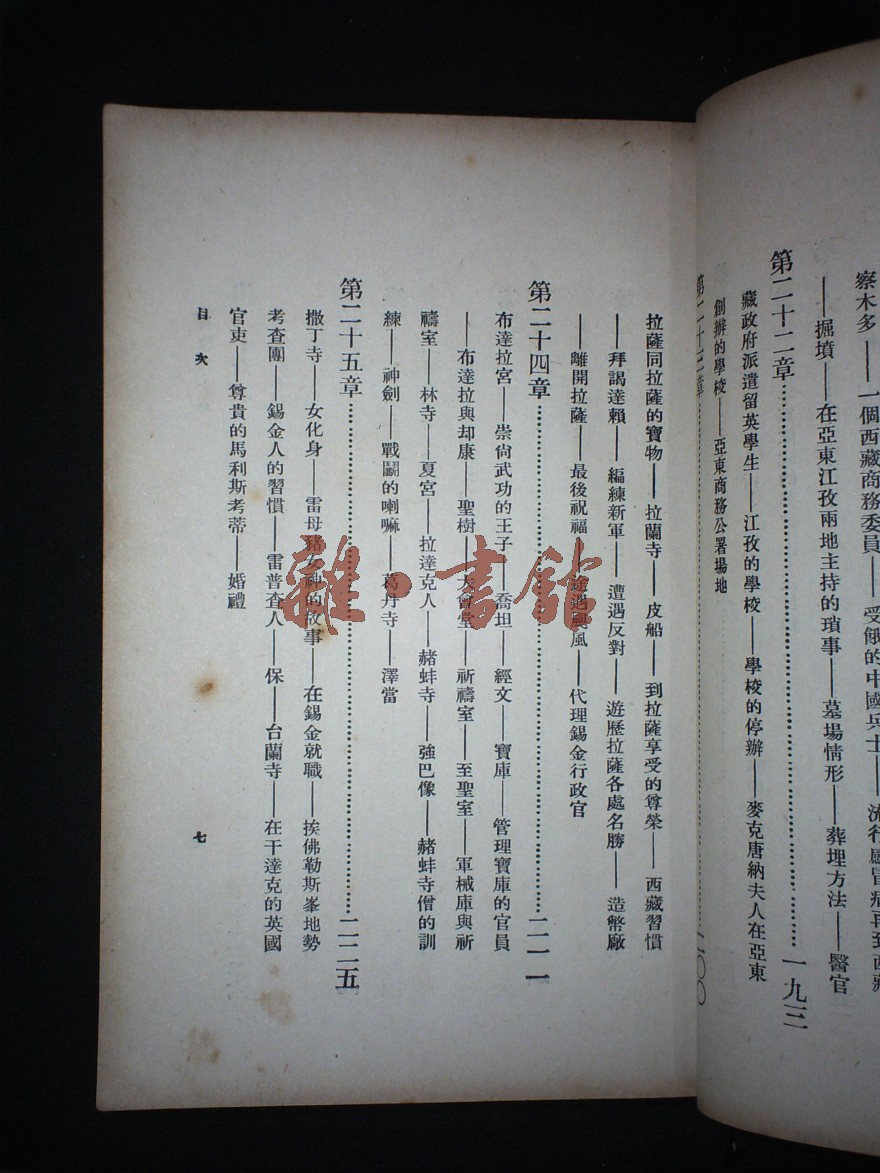 察木多——一個西藏商務委員——受餓的中國兵士——流行感冒病再到西藏
——掘墳——在亞東江孜兩地主持的瑣事——墓場情形——葬埋方法——醫官
第二十二章……一九三
藏政府派遣留英學生——江孜的學校——學校的停辦——麥克唐納夫人在亞東
創辦的學校——亞東商務公署場地
第二十三章……二〇〇
拉薩同拉薩的寶物——拉蘭寺——皮船——到拉薩享受的尊榮——西藏習慣
——拜謁達賴——編練新軍——遭遇反對——遊歷拉薩各處名勝——造幣廠
——離開拉薩——最後祝福——途遇颶風——代理錫金行政官
第二十四章……二一一
布達拉宮——崇尙武功的王子——喬坦——經文——寶庫——管理寶庫的官員
——布達拉與却康——聖樹——大會堂——祈禱室——至聖室——軍械庫與祈
禱室——林寺——夏宮——拉達克人——赭蚌寺——強巴像——赭蚌寺僧的訓
練——神劍——戰鬭的喇嘛——葛丹寺——澤當
第二十五章……二二五
撒丁寺——女化身——雷母豬女神的故事——在錫金就職——挨佛勒斯峯地勢
考查團——錫金人的習慣——雷普查人——保——台蘭寺——在干達克的英國
官吏——尊貴的馬利斯考蒂——婚禮
目次
七
雜·書館